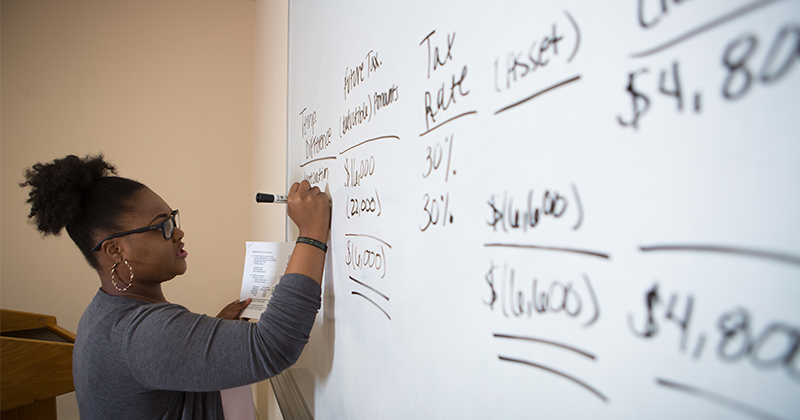 Temp. Future Tax. Tax (Asset)
Difference (deductible) Amounts Rate
$16,000 30% $4,800
(22,000) 30% $(6,600)
$(6,000) $(6,600) $4,800